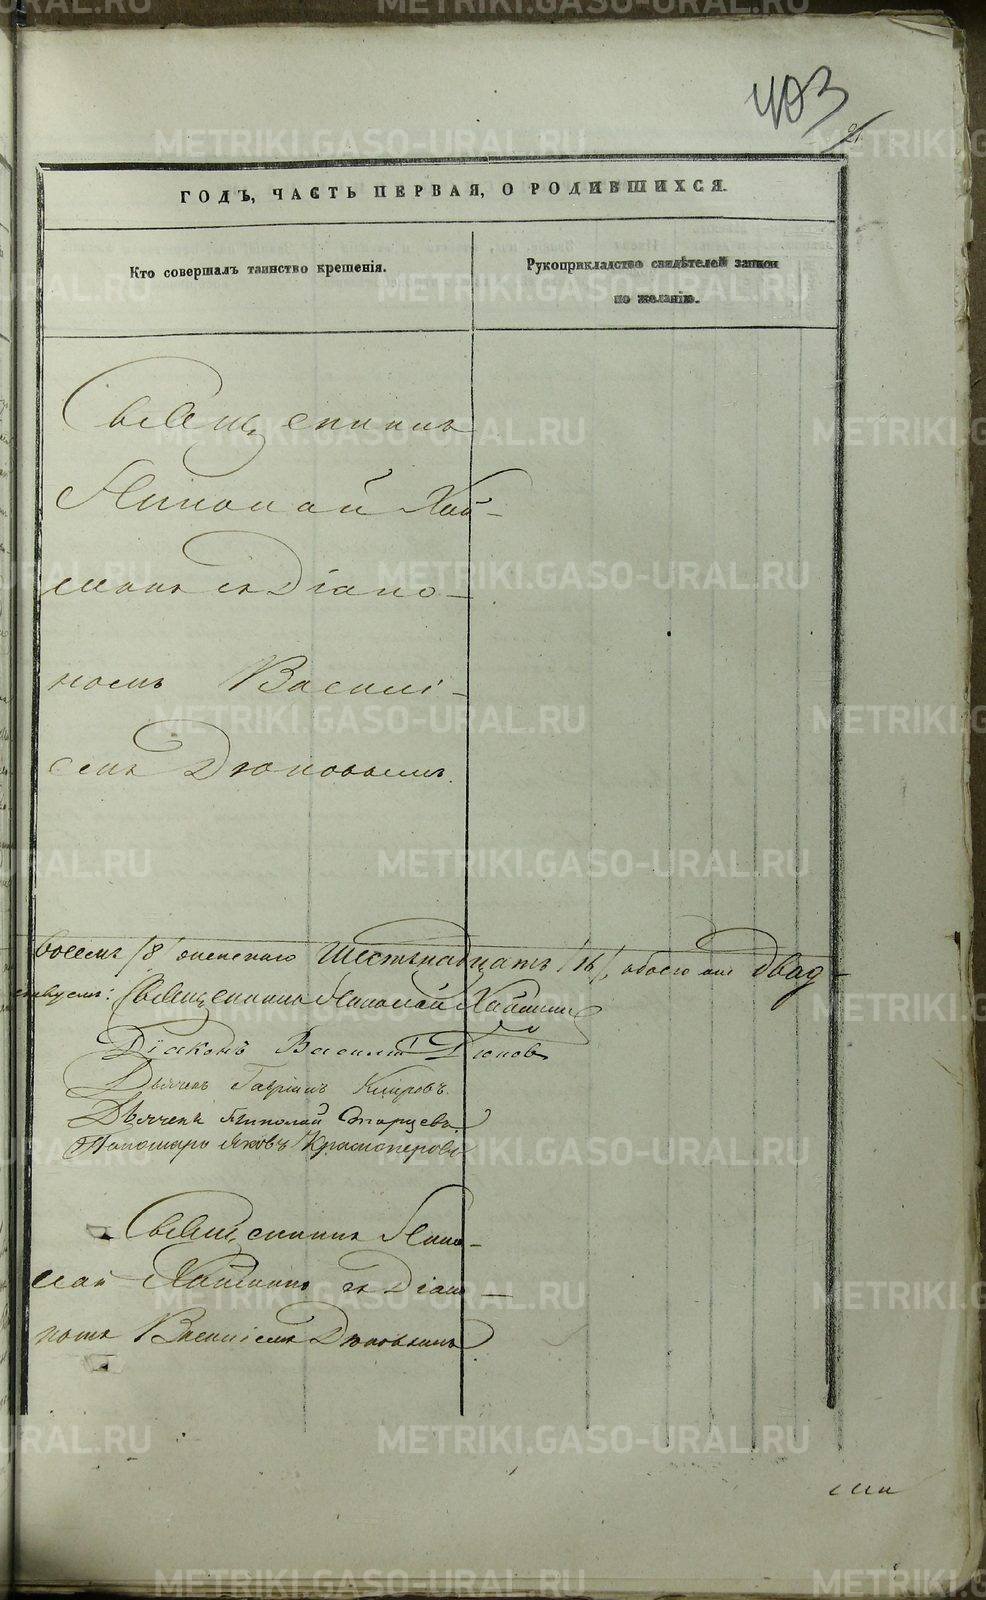 403
ГОДЪ, ЧАСТЬ ПЕРВАЯ, О РОДИВШИХСЯ.
Кто совершалъ таинство крещенія.
Рукоприкладство свидѣтелей записи
по желанію.
Священникъ
Николай Хай-
минъ съ Діако-
номъ Василі-
емъ Дюковымъ.
восемь /8/ женскаго шестьнадцать /16/, обоего двад-
Священникъ Николай Хайминъ
Діаконъ Василій Дюковъ
Дьячекъ Гавріилъ Кировъ.
Дьячекъ Николай Старцевъ
Пономарь Яковъ Красноперовъ
Священникъ Нико-
лай Хайминъ съ Діако-
номъ Василіемъ Дюковымъ
METRIKI.GASO-URAL.RU